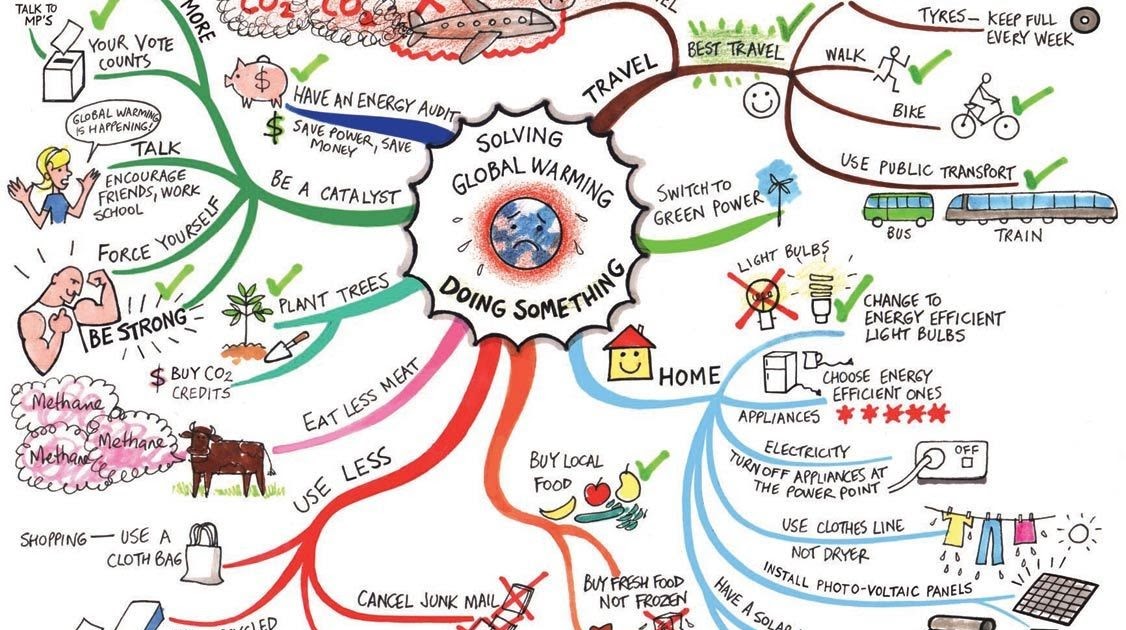 TALK TO
MP'S
YOUR VOTE
COUNTS
MORE
GLOBAL WARMING
IS HAPPENING!
TALK
ENCOURAGE
FRIENDS, WORK
SCHOOL
FORCE YOURSELF
BE STRONG
BE A CATALYST
$
HAVE AN ENERGY AUDIT
$ SAVE POWER, SAVE
MONEY
CO2 CO2
SOLVING
GLOBAL WARMING
DOING SOMETHING
TRAVEL
BEST TRAVEL
TYRES – KEEP FULL
EVERY WEEK
WALK
BIKE
USE PUBLIC TRANSPORT
BUS
TRAIN
SWITCH TO
GREEN POWER
PLANT TREES
$ BUY CO2
CREDITS
EAT LESS MEAT
Methane
Methane
Methane
USE LESS
SHOPPING — USE A
CLOTH BAG
CANCEL JUNK MAIL
BUY LOCAL
FOOD
BUY FRESH FOOD
NOT FROZEN
HOME
LIGHT BULBS
CHANGE TO
ENERGY EFFICIENT
LIGHT BULBS
CHOOSE ENERGY
EFFICIENT ONES
APPLIANCES
ELECTRICITY
TURN OFF APPLIANCES AT
THE POWER POINT
OFF
USE CLOTHES LINE
NOT DRYER
INSTALL PHOTO-VOLTAIC PANELS
HAVE A SOLAR